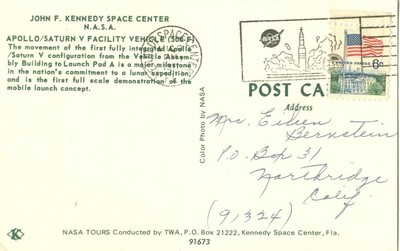 JOHN F. KENNEDY SPACE CENTER
N.A.S.A.
APOLLO/SATURN V FACILITY VEHICLE (500-F)
The movement of the first fully integrated Apollo
/Saturn V configuration from the Vehicle Assem-
bly Building to Launch Pad A is a major milestone
in the nation's commitment to a lunar expedition,
and is the first full scale demonstration of the
mobile launch concept.
Color Photo by NASA
NASA
UNITED STATES
6c
POST CA
Address
Mrs. Eileen
Bernstein
P.O. Box 31
Northridge
Calif.
(91324)
K
NASA TOURS Conducted by TWA, P.O. Box 21222, Kennedy Space Center, Fla.
91673